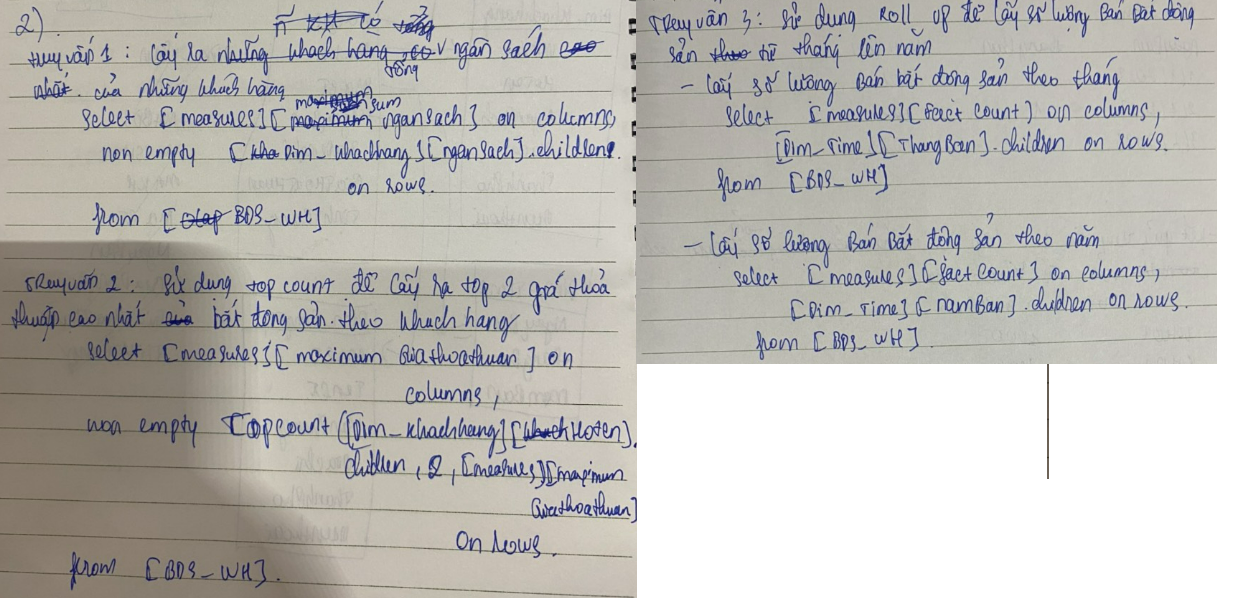 2).
truy vấn 1 : lấy ra những khach hang có ngân sách cao
tổng
nhất. của những khách hàng
maximum sum
select [measures][maximum ngansach] on columns,
non empty [kha Dim_khachhang][ngansach].children.
on rows.
from [olap BDS_WH]
Truy vấn 2 : sử dụng top count để lấy ra top 2 giá thỏa
thuận cao nhất của bất động sản. theo khach hang
select [measures][maximum Giathoathuan] on
columns,
non empty Topcount([Dim_khachhang][khach Hoten].
children, 2, [measures][maximum
Giathoathuan]
on rows.
from [BDS_WH].
Truy vấn 3 : sử dung Roll up để lấy số lượng Bán Bất động
sản theo từ tháng lên năm
- lấy số lượng Bán bất động sản theo tháng
select [measures][fact Count] on columns,
[Dim_Time][ThangBan].children on rows.
from [BDS_WH]
- lấy số lượng Bán Bất động sản theo năm
select [measures][fact Count] on columns,
[Dim_Time][namBan].children on rows.
from [BDS_WH].